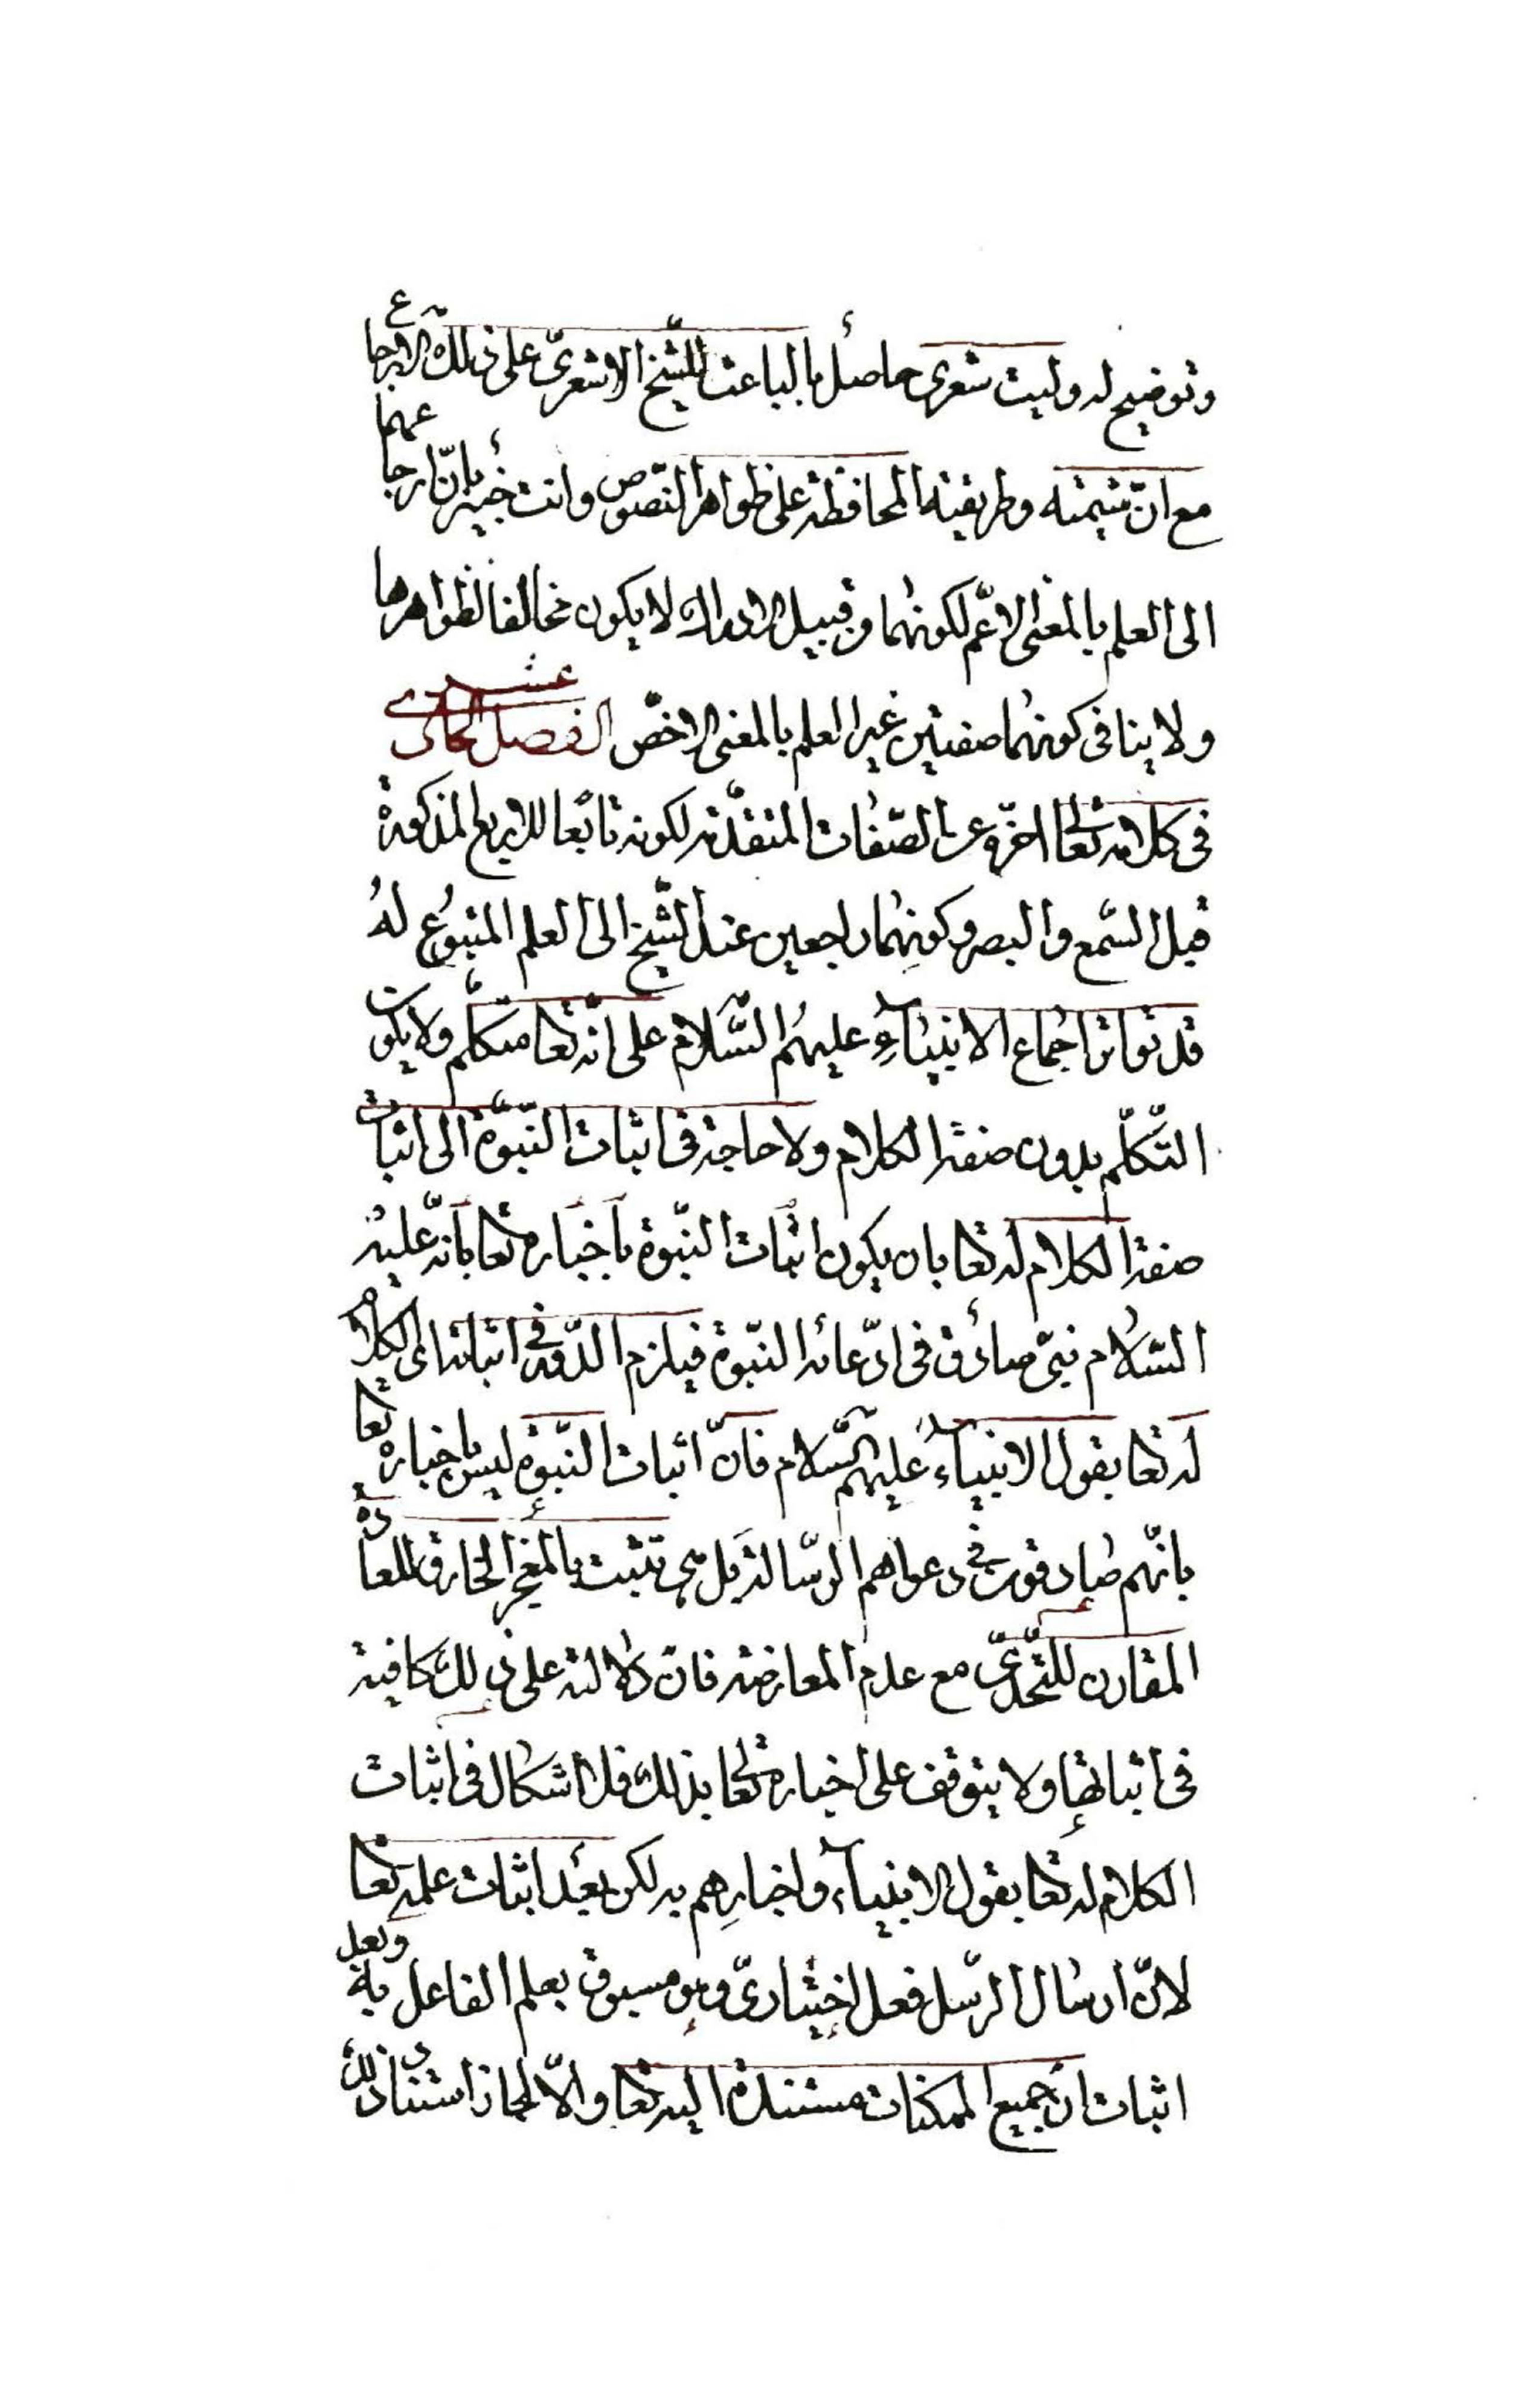 وتوضيح له وليت شعرى حاصل ما الباعث للشيخ الاشعرىّ على ذلك الارجاع
مع انّ شيمته وطريقته المحافظة على ظواهر النّصوص وانت خبير بانّ ارجاعهما
الى العلم بالمعنى الاعمّ لكونهما من قبيل الادراك لا يكون مخالفا لظواهرها
ولا ينافى كونهما صفتين غير العلم بالمعنى الاخصّ الفصل الحادى عشر
فى كلامه تعالى اخّره عن الصّفات المتقدّمة لكونه تابعًا للاربع المذكورة
قبل السّمع والبصر وكونِهما راجعين عند الشّيخ الى العلم المتبوع لهُ
قد تواتر اجماع الانبيآءِ عليهم السّلام على انّه تعا متكلّم ولا يكون
التّكلّم بدون صفة الكلام ولا حاجة فى اثبات النّبوّة الى اثبات
صفة الكلام له تعا بان يكون اثبات النّبوة باخباره تعا بانّه عليه
السّلام نبىّ صادق فى ادّعائه النّبوة فيلزم الدّور فى اثباتنا اى الكلام
له تعا بقول الانبيآء عليهم السّلام فانّ اثبات النّبوة ليس باخباره تعا
بانّهم صادقون فى دعواهم الرّسالة بل هى تثبت بالمعجز الخارق للعادة
المقارن للتّحدّى مع عدم المعارضة فان دلالته على ذلك كافية
فى اثباتها ولا يتوقف على اخباره تعالى بذلك فلا اشكال فى اثبات
الكلام له تعا بقول الانبيآء واخبارِهم به لكن بعد اثبات علمه تعا
لانّ ارسال الرّسل فعل اختيارىّ وهو مسبوق بعلم الفاعل به وبعد
اثبات ان جميع الممكنات مستندة اليه تعا والّا لجاز استناد ذلك